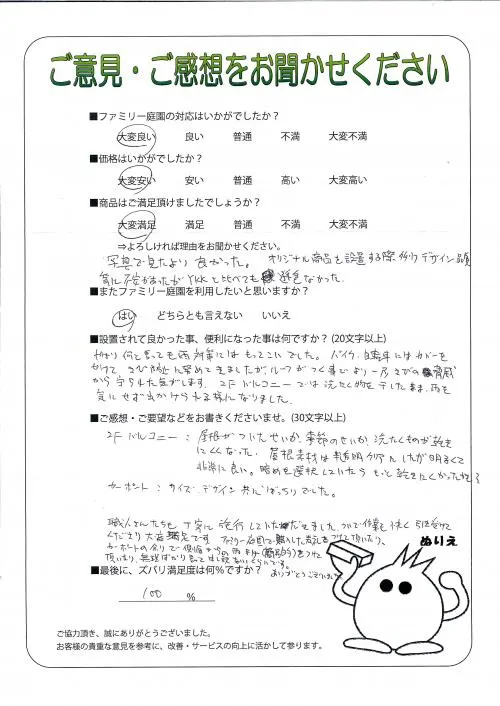 ご意見・ご感想をお聞かせください
■ファミリー庭園の対応はいかがでしたか？
大変良い 良い 普通 不満 大変不満
■価格はいかがでしたか？
大変安い 安い 普通 高い 大変高い
■商品はご満足頂けましたでしょうか？
大変満足 満足 普通 不満 大変不満
⇒よろしければ理由をお聞かせください。
写真で見たより良かった。 オリジナル商品を設置する際 デザイン、品質
気に不安があったが YKKと比べても 遜色なかった。
■またファミリー庭園を利用したいと思いますか？
はい どちらとも言えない いいえ
■設置されて良かった事、便利になった事は何ですか？(20文字以上)
やはり何と言っても雨対策にはもってこいでした。バイク、自転車にはカバーを
かけて さび防止に努めてきましたが、ルーフがつく事により一層さびの脅威
から守られた気がします。 2Fバルコニーでは洗たく物を干したまま、雨を
気にせず出かけられる様になりました。
■ご感想・ご要望などをお書きくださいませ。(30文字以上)
2Fバルコニー： 屋根がついたせいか、季節のせいか、洗たくものが乾き
にくくなった。 屋根素材は透明クリアにしたが明るくて
非常に良い。暗めを選択していたら もっと乾きにくかったかも
カーポート： サイズ、デザイン共にばっちりでした。
職人さんたちも 丁寧に施行していただきました。ついで作業も快く引き受けて
くださり大満足です。
ぬりえ
■最後に、ズバリ満足度は何％ですか？
ありがとうございました
100 %
ご協力頂き、誠にありがとうございました。
お客様の貴重な意見を参考に、改善・サービスの向上に活かして参ります。